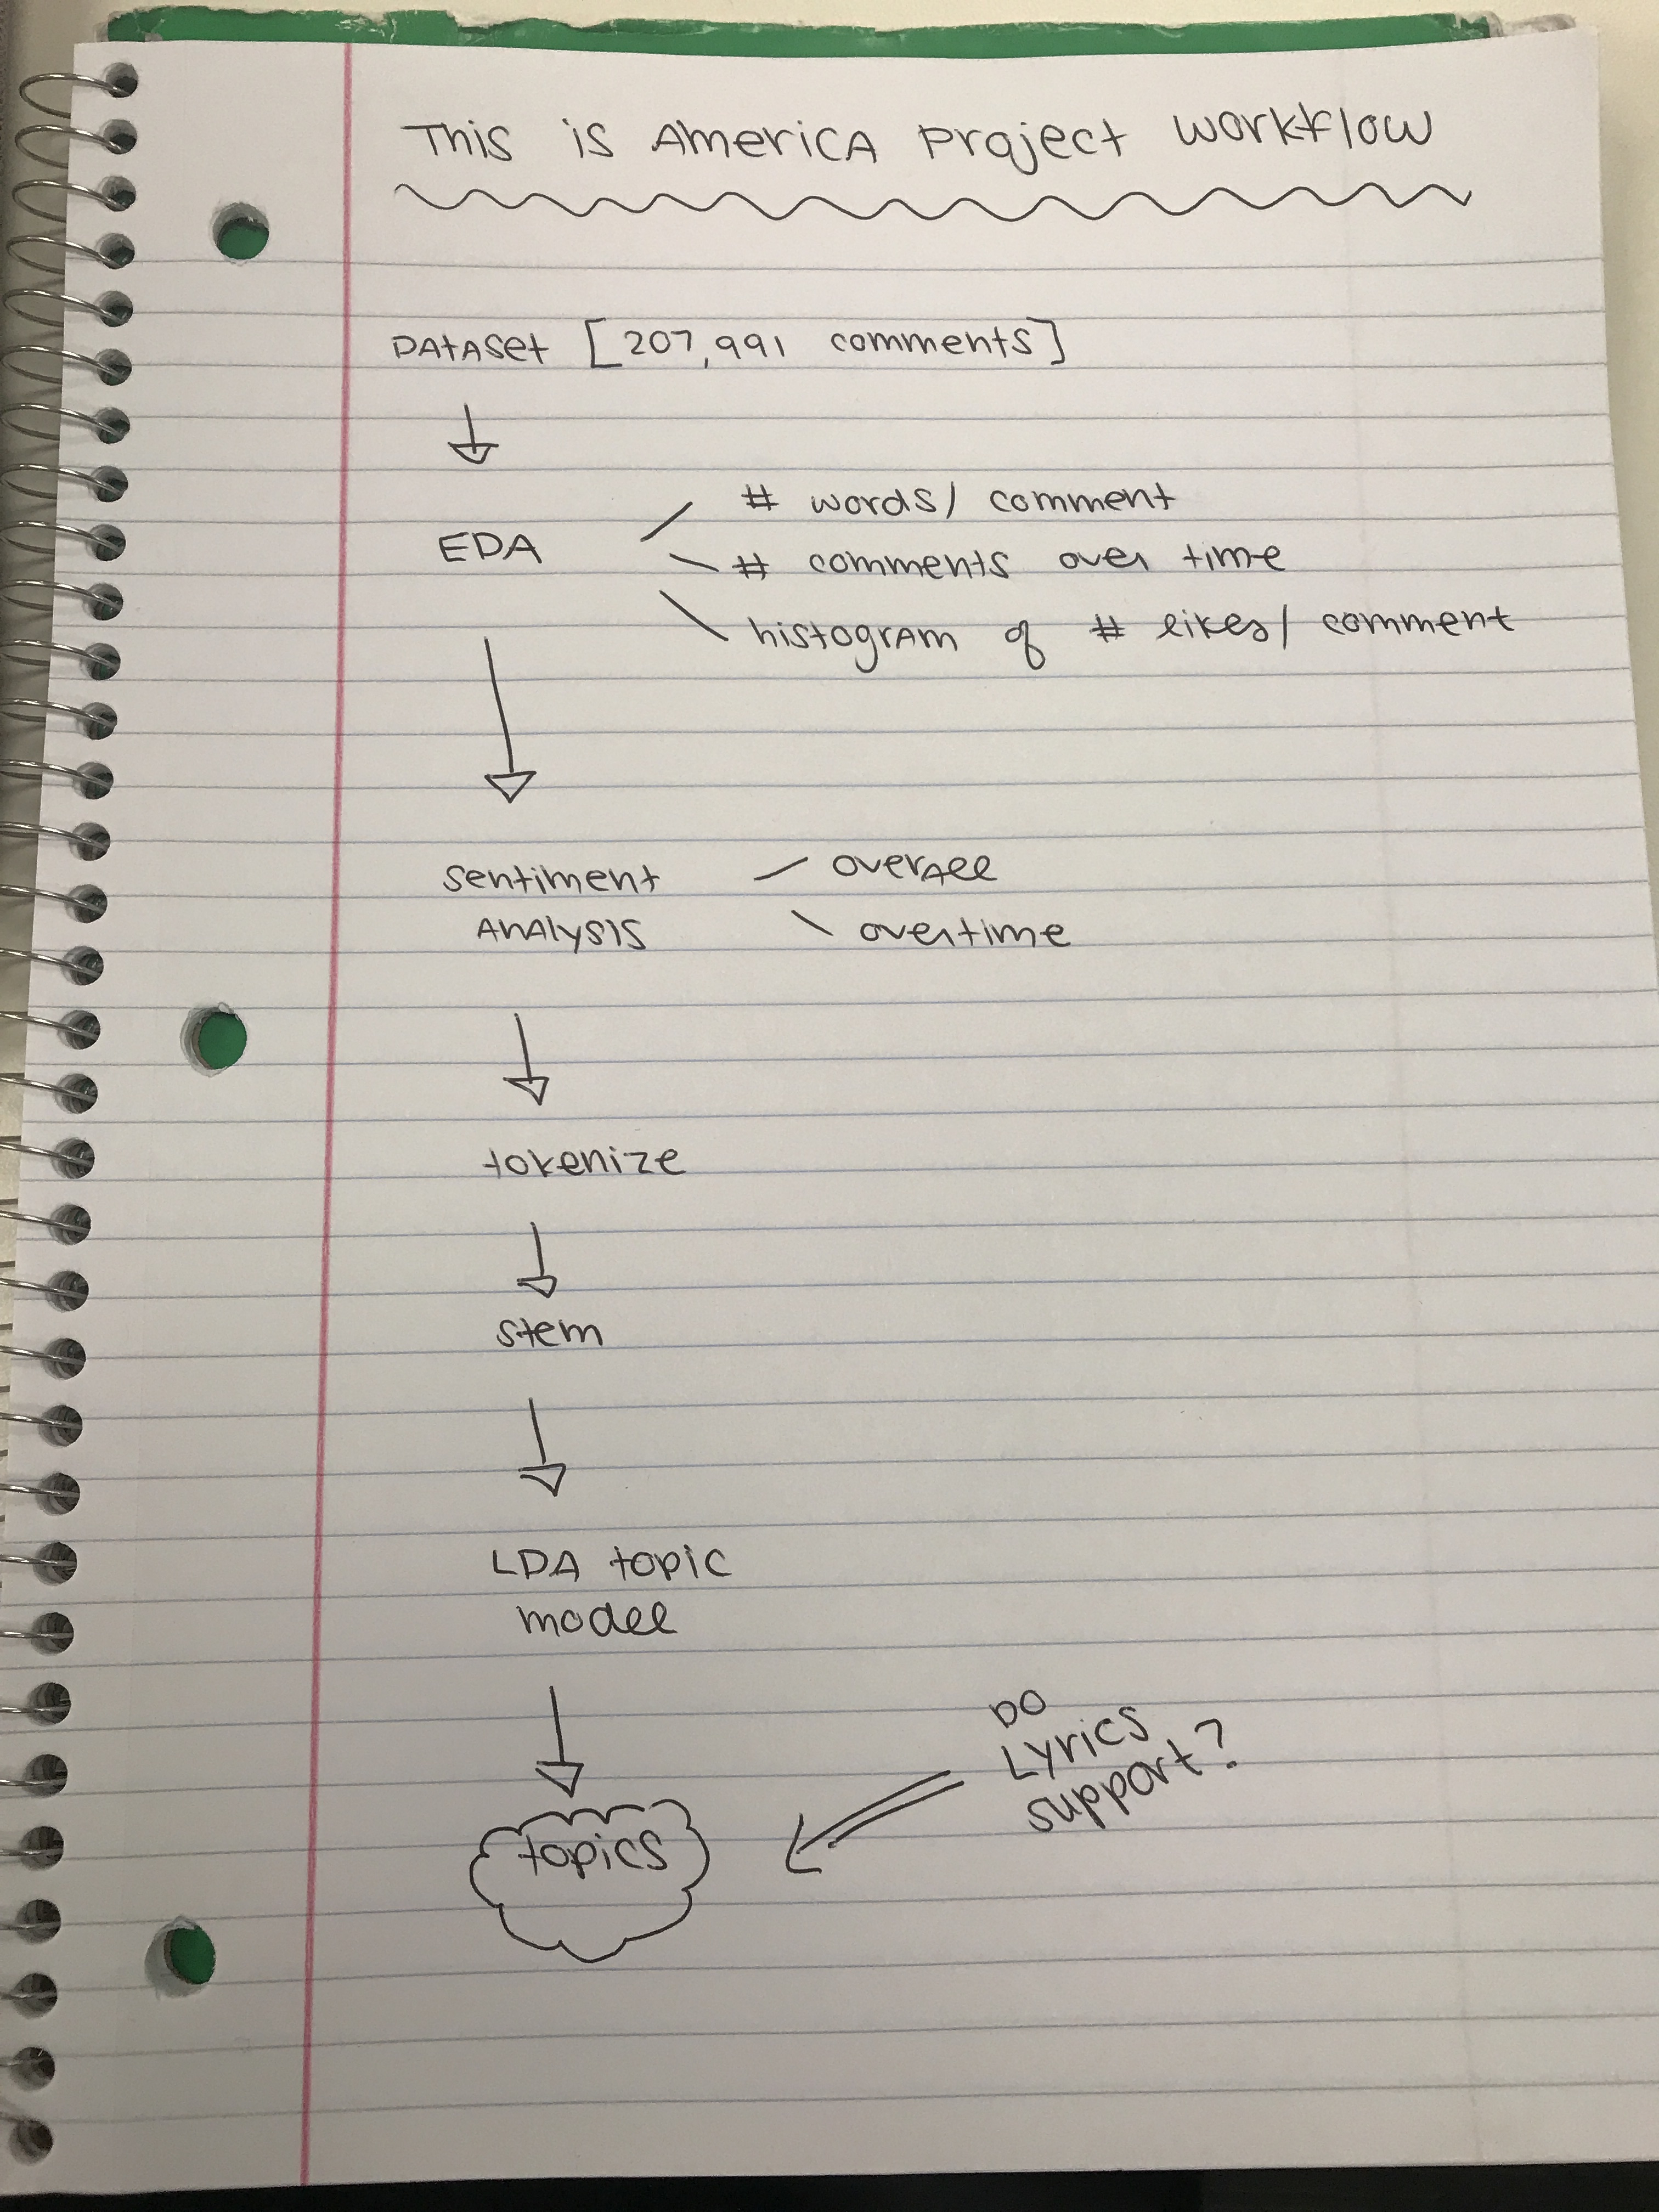 This is America Project Workflow
Dataset [207,991 comments]
# words/ comment
EDA
# comments over time
histogram of # likes/ comment
sentiment
analysis
overall
overtime
tokenize
stem
LDA topic
model
Do
Lyrics
support?
topics